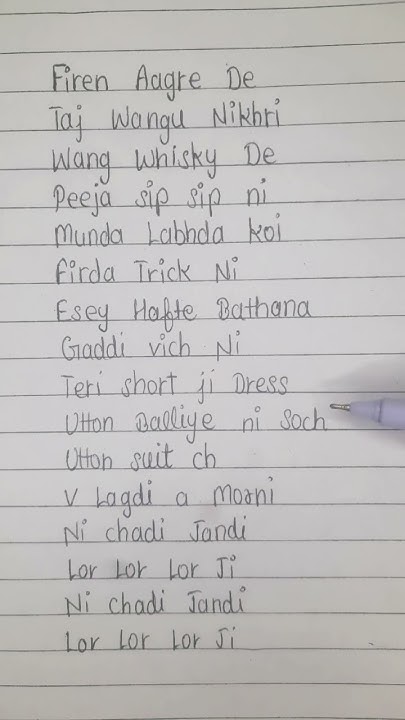 Firen Aagre De
Taj Wangu Nikhri
Wang Whisky De
Peeja sip sip ni
Munda Labhda koi
Firda Trick Ni
Esey Hafte Bathana
Gaddi vich Ni
Teri short ji Dress
Utton Balliye ni Soch
Utton suit ch
V Lagdi a Morni
Ni chadi Jandi
Lor Lor Lor Ji
Ni chadi Jandi
Lor Lor Lor Ji